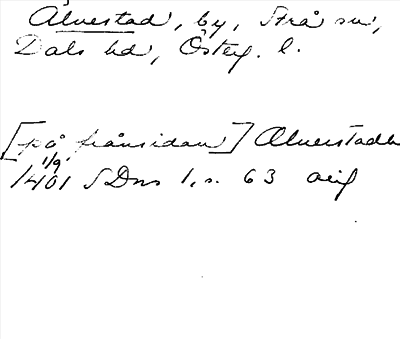 Ålverstad, by, Strå sn,
Dals hd, Österg. l.
[på frånsidan] Alverstadh
1/9
1401 SDns 1, s. 63 orig